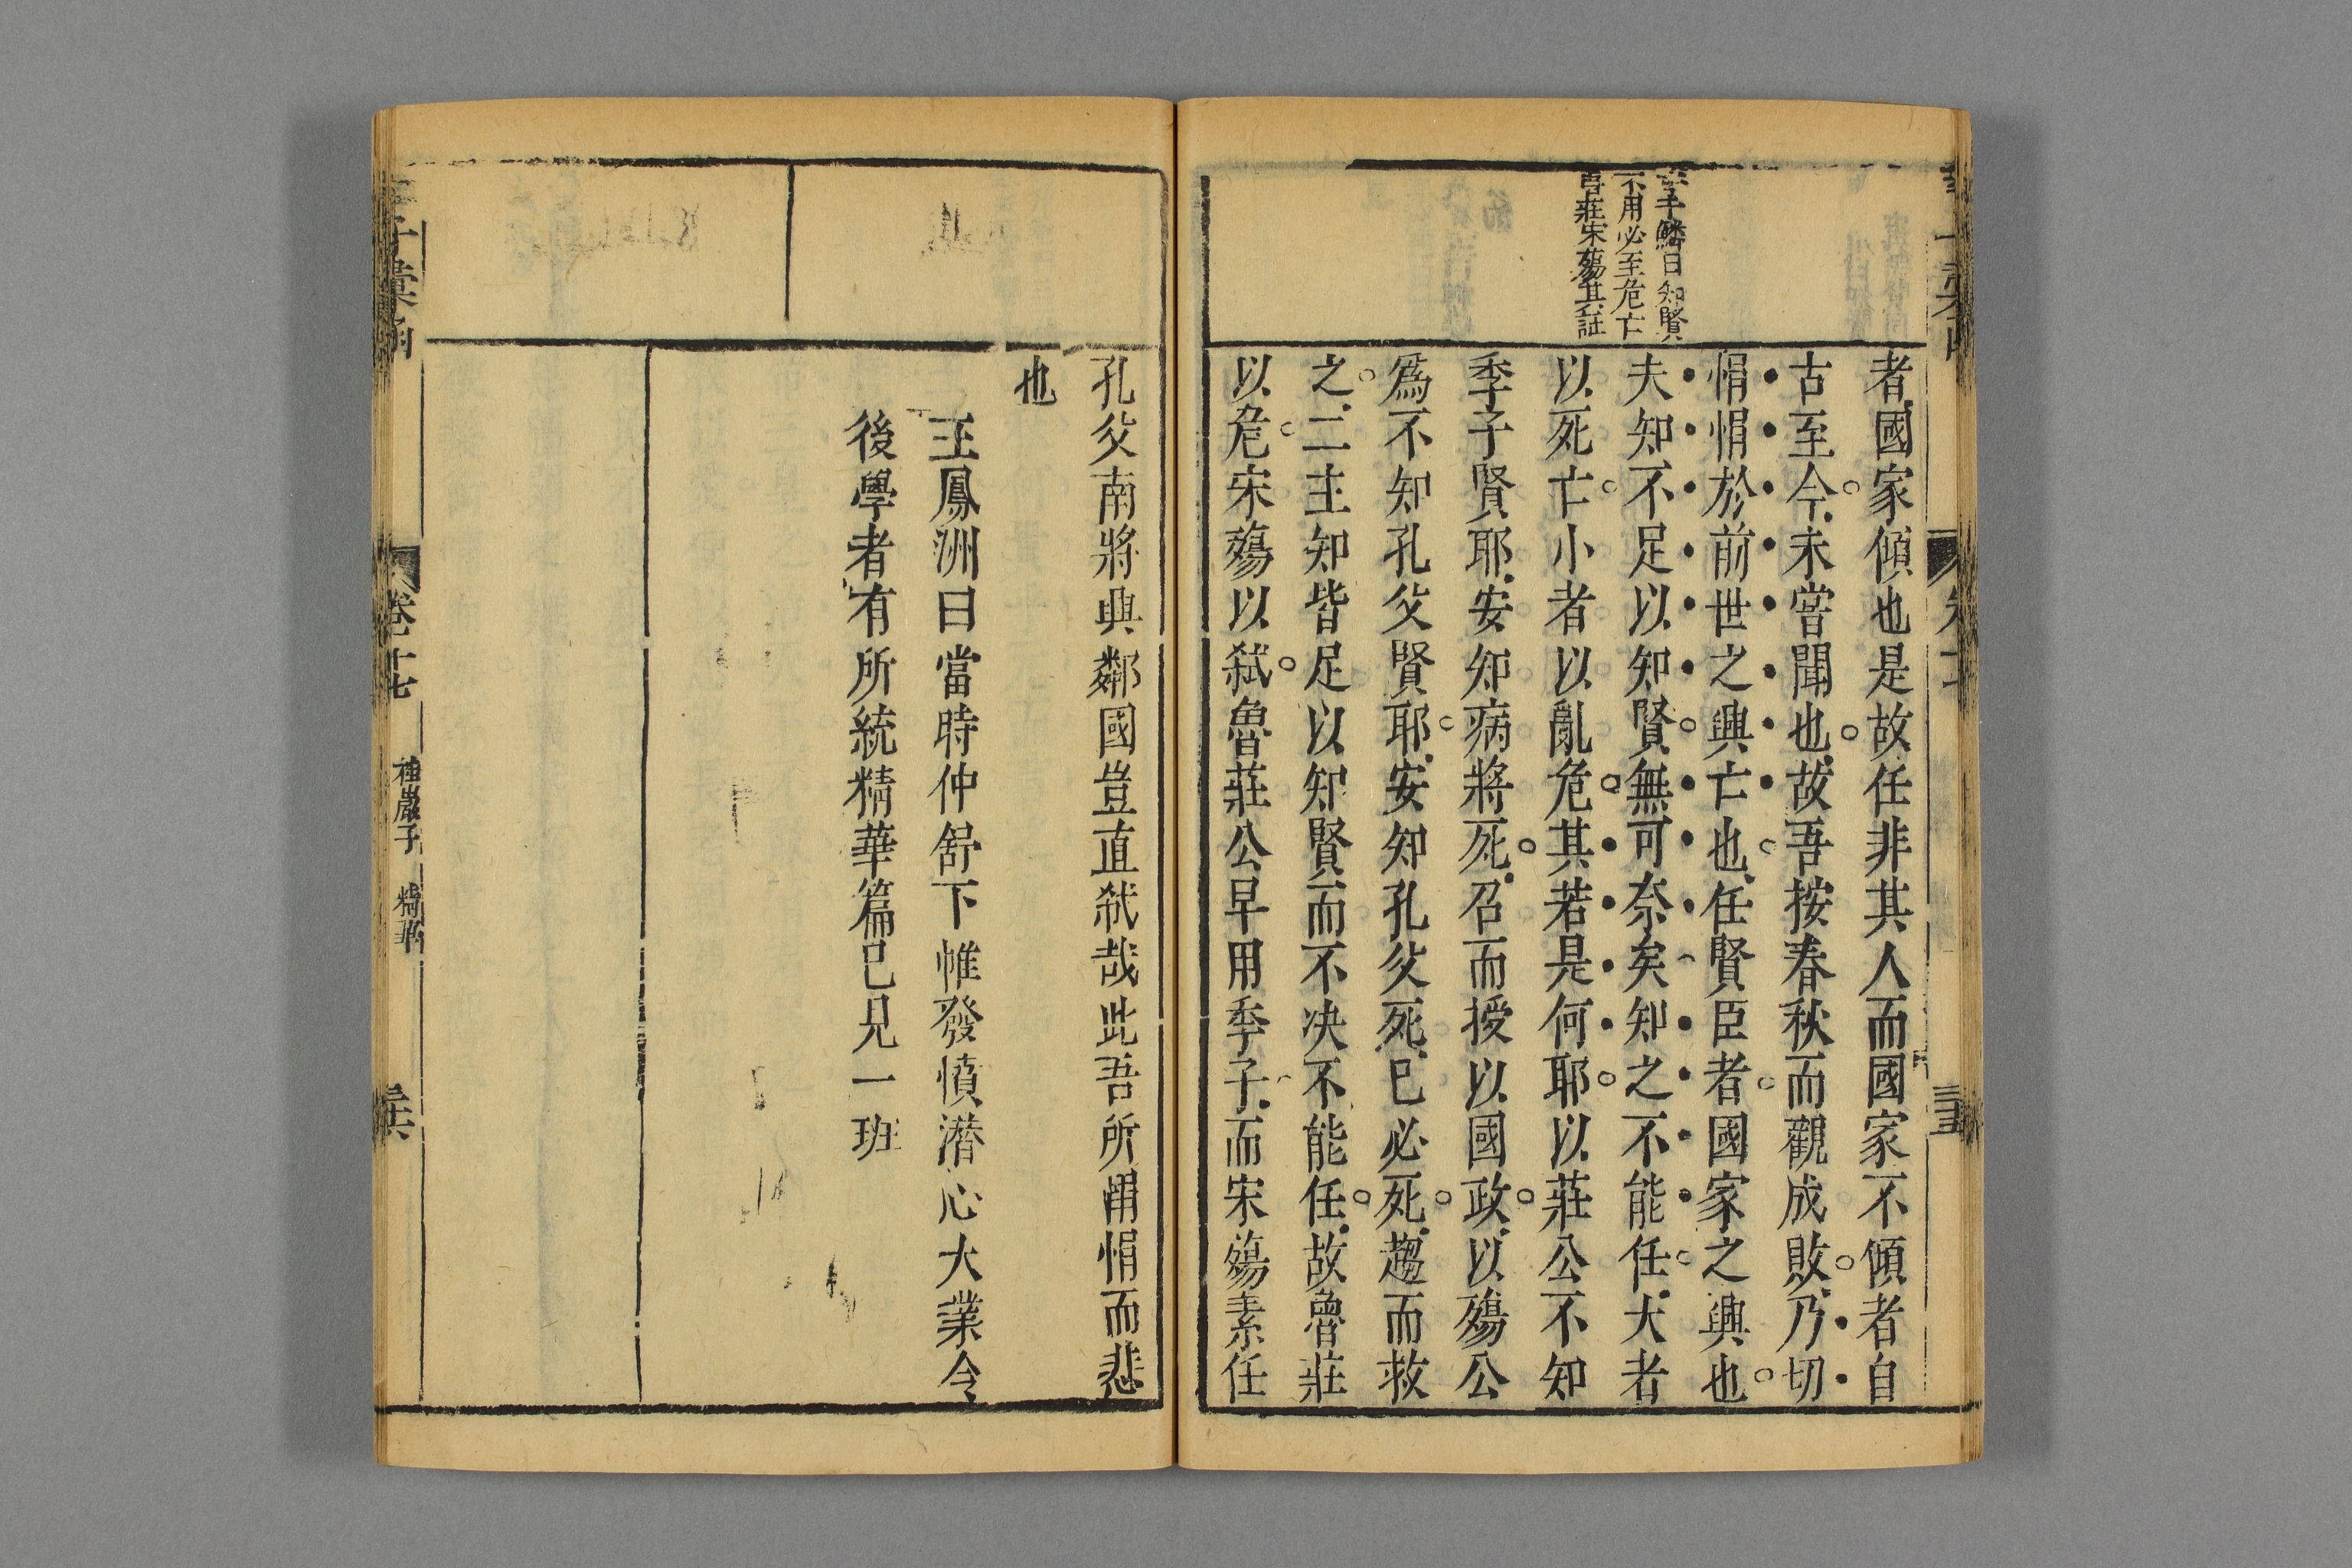 李于鱗曰知賢
不用必至危亡
魯莊宋殤其証
者國家傾也是故任非其人而國家不傾者自
古至今未嘗聞也故吾按春秋而觀成敗乃切
悁悁於前世之興亡也任賢臣者國家之興也
夫知不足以知賢無可奈矣知之不能任大者
以死亡小者以亂危其若是何耶以莊公不知
季子賢耶安知病將死召而授以國政以殤公
爲不知孔父賢耶安知孔父死已必死趨而救
之二主知皆足以知賢而不决不能任故魯莊
以危宋殤以弑魯莊公早用季子而宋殤素任
孔父南將興鄰國豈直弑哉此吾所謂悁而悲
也
王鳳洲曰當時仲舒下帷發憤潛心大業令
後學者有所統精華篇已見一班
子彙函
卷十七
桂巖子 精華